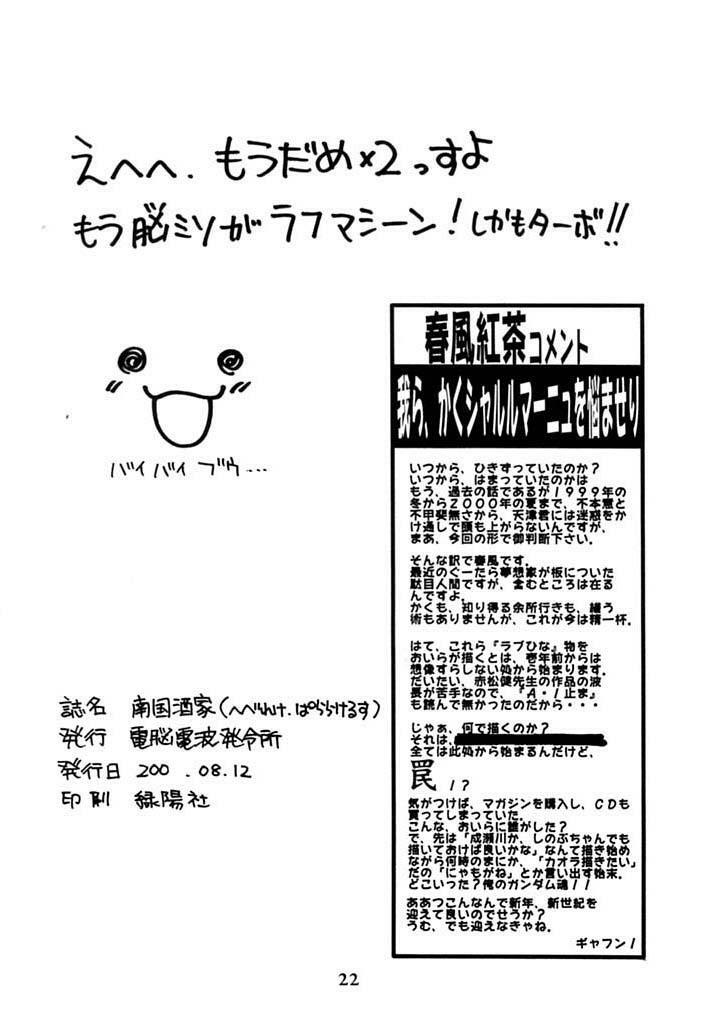 えへへ、もうだめ×2っすよ
もう脳ミソがラフマシーン!しかもターボ!!
バイバイブウ…
春風紅茶コメント
我ら、かくシャルルマーニュを悩ませり
いつから、ひきずっていたのか?
いつから、はまっていたのかは
もう、過去の話であるが1999年の
冬から2000年の夏まで、不本意と
不甲斐無さから、天津君には迷惑をか
け通しで頭も上がらないんですが、
まあ、今回の形で御判断下さい。
そんな訳で春風です。
最近のぐーたら夢想家が板についた
駄目人間ですが、含むところは在る
んですよ。
かくも、知り得る余所行きも、繕う
術もありませんが、これが今は精一杯。
はて、これら『ラブひな』物を
おいらが描くとは、壱年前からは
想像すらしない処から始まります。
だいたい、赤松健先生の作品の波
長が苦手なので、『A・I止ま』
も読んで無かったのだから・・・
じゃあ、何で描くのか?
それは、
全ては此処から始まるんだけど、
罠!?
気がつけば、マガジンを購入し、CDも
買ってしまっていた。
こんな、おいらに誰がした?
で、先は「成瀬川か、しのぶちゃんでも
描いておけば良いかな」なんて描き始め
ながら何時のまにか、「カオラ描きたい」
だの「にゃもがね」とか言い出す始末。
どこいった?俺のガンダム魂!!
ああつこんなんで新年、新世紀を
迎えて良いのでせうか?
うむ、でも迎えなきゃね。
ギャフン!
誌名 南国酒家(へべれけ.ぱららけるす)
発行 電脳電波発令所
発行日 200 .08.12
印刷 緑陽社
22